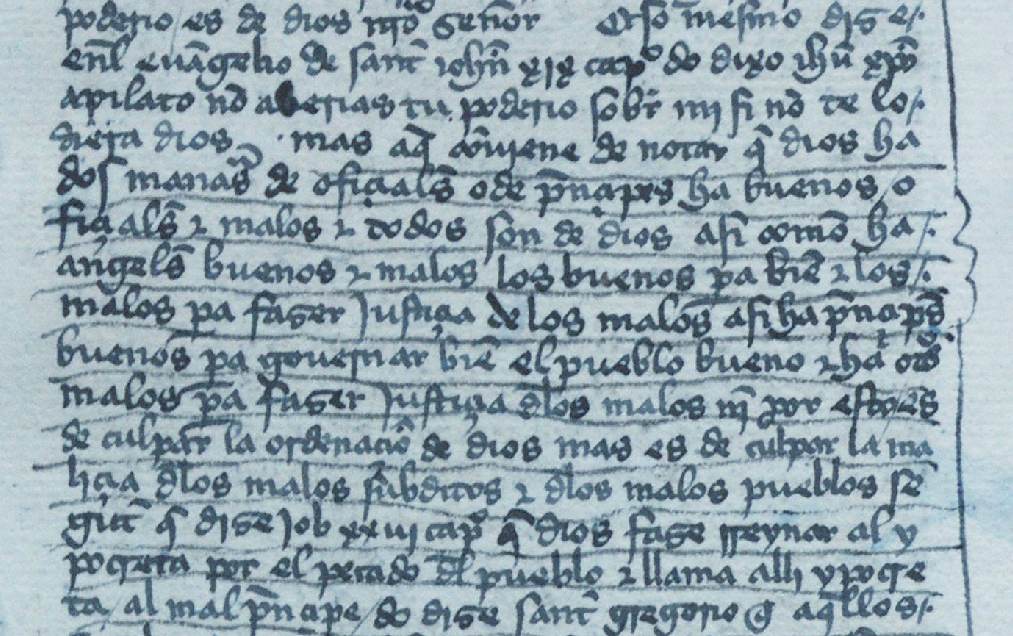 poderio / es de dios nrõ señor Eso mesmo dise /.
enl euãgelio de sant iohñ xix capº do dixo ihũ xpõ
apilato nõ aberias tu poderio sobr mj si nõ te lo /.
diera dios . mas aq̃ cõuiene de notar q̃ dios ha
dos maneras de ofiçials̃ o de p̃nçipes ha buenos / o
fiçials̃ ⁊ malos ⁊ todos son de dios asi commo ha /.
angels̃ buenos ⁊ malos los buenos pa biẽ ⁊ los /.
malos pa faser Justiçia de los malos asi ha p̃nçipes
buenos pa gouernar biẽ el pueblo bueno ⁊ ha otõs
malos pa faser Justiçia dlos malos nj̃ por esto es
de culpar la ordenaçiõ de dios mas es de culpar la ma
liçia dlos malos subditos ⁊ dlos malos pueblos se
gũt q̃ dise Job xxvi capº q̃ dios fase rreynar al y
pocreta por el pecado dl pueblo ⁊ llama alli ypocre
ta / al mal p̃nçipe / do dise sant gregorio q̃ aq̃llos /.